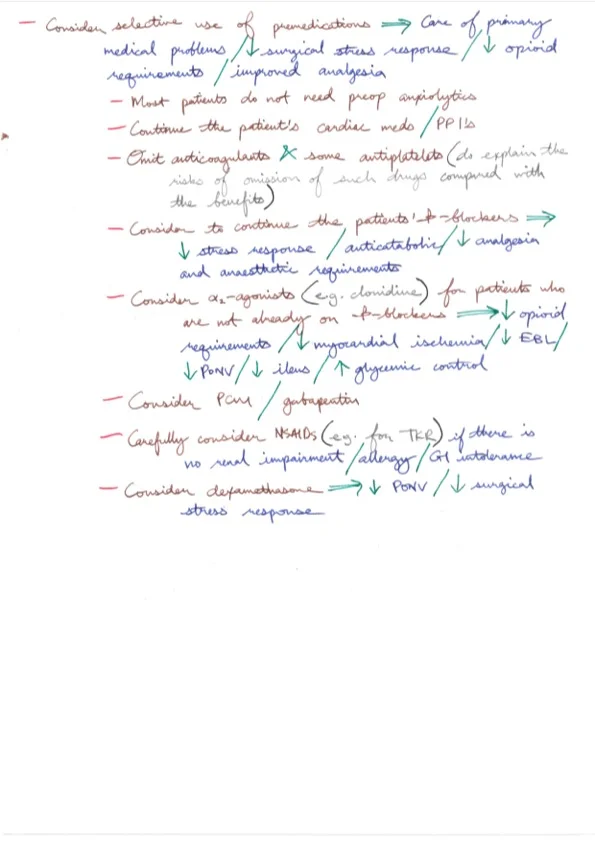 — Consider selective use of premedications ⇒ Care of primary
medical problems / ↓ surgical stress response / ↓ opioid
requirements / improved analgesia
— Most patients do not need preop anxiolytics
— Continue the patient's cardiac meds / PPI's
— Omit anticoagulants & some antiplatelets (do explain the
risks of omission of such drugs compared with
the benefits)
— Consider to continue the patients' β-blockers ⇒
↓ stress response / anticatabolic / ↓ analgesia
and anaesthetic requirements
— Consider α₂-agonists (e.g. clonidine) for patients who
are not already on β-blockers ⇒ ↓ opioid
requirements / ↓ myocardial ischemia / ↓ EBL /
↓ PONV / ↓ ileus / ↑ glycemic control
— Consider PCM / gabapentin
— Carefully consider NSAIDs (e.g. for TKR) if there is
no renal impairment / allergy / GI intolerance
— Consider dexamethasone ⇒ ↓ PONV / ↓ surgical
stress response